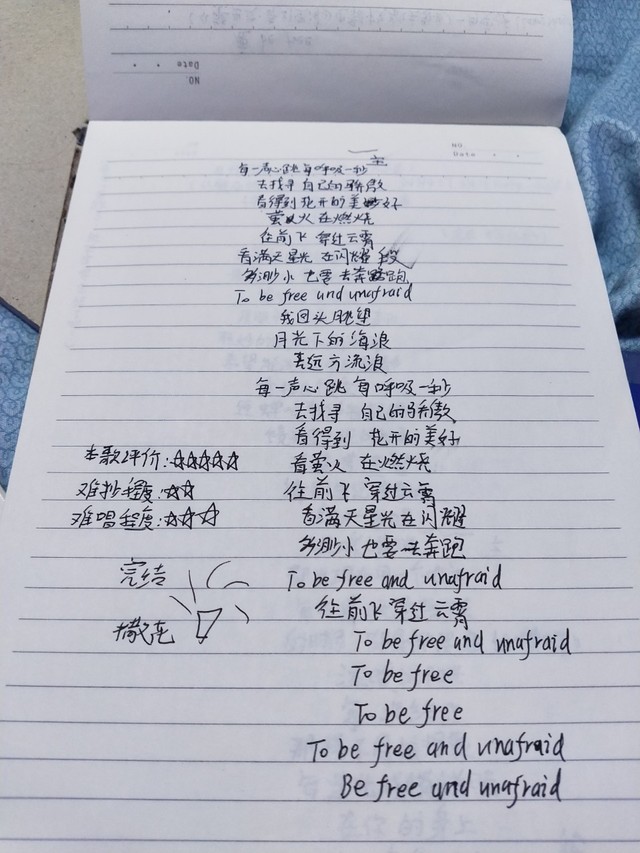 NO.
Date
NO.
Date
每一声心跳 每呼吸一秒
去找寻 自己的骄傲
看得到 花开的美妙好
萤火 在燃烧
往前飞 穿过云霄
看满天星光 在闪耀
多渺小 也要去奔跑
To be free and unafraid
我回头眺望
月光下的海浪
去远方流浪
每一声心跳 每呼吸一秒
去找寻 自己的骄傲
看得到 花开的美好
本歌评价:☆☆☆☆☆ 看萤火 在燃烧
难抄程度:☆☆ 往前飞 穿过云霄
难唱程度:☆☆☆ 看满天星光在闪耀
多渺小 也要去奔跑
完结 To be free and unafraid
往前飞 穿过云霄
撒花 To be free and unafraid
To be free
To be free
To be free and unafraid
Be free and unafraid